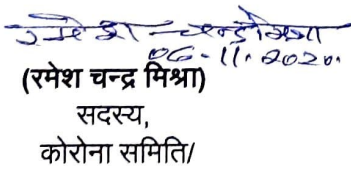 रमेश चन्द्र मिश्रा
06-11-2020.
(रमेश चन्द्र मिश्रा)
सदस्य,
कोरोना समिति/